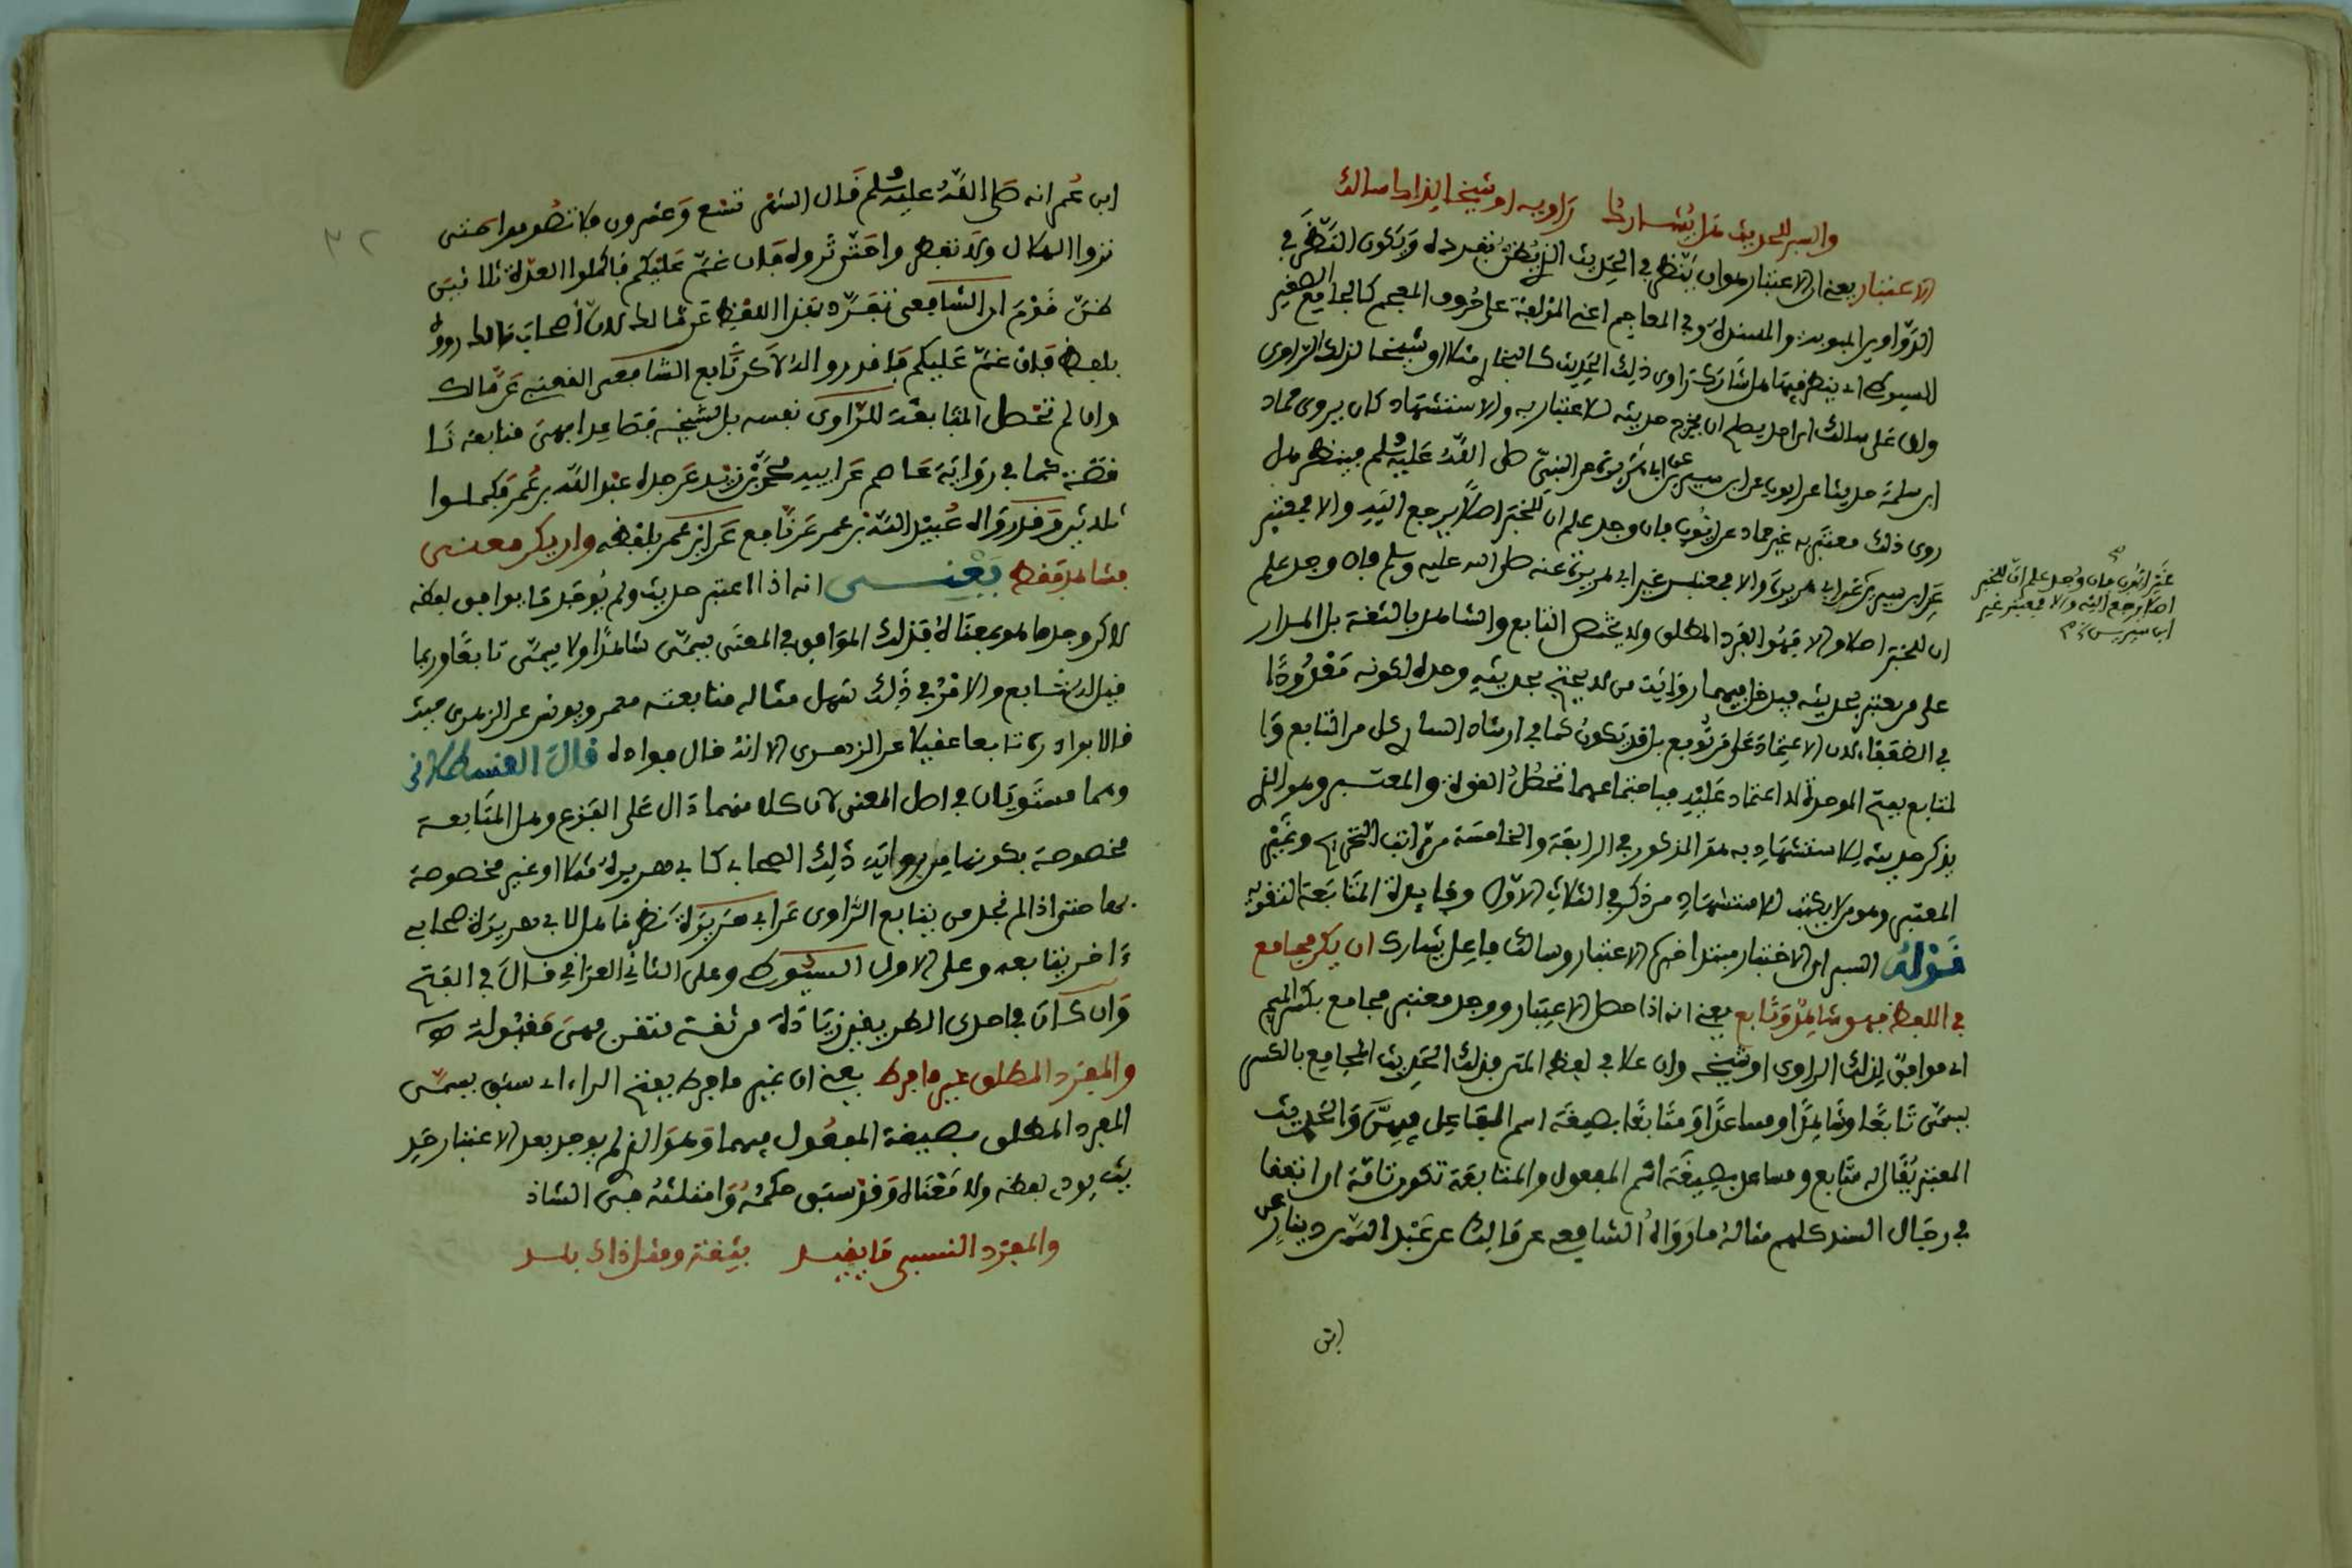 والسبر للحديث هل يشارك راويه او شيخا لذاك سالك
الاعتبار يعني ان الاعتبار هو ان ينظر في الحديث الذي يظن تفرده ويكون النظر في
الدواوين المبوبة والمسندة وفي المعاجم اعني المؤلفة على حروف المعجم كالجامع الصغير
للسيوطي اي ينظر فيها هل شارك راوي ذلك الحديث كالبخاري مثلا او شيخا لذلك الراوي
ولو على سالك اي راو يصلح ان يخرج حديثه للاعتبار به والاستشهاد كان يروي حماد
ابن سلمة حديثا عن ايوب عن ابن سيرين عن ابي هريرة عن النبي صلى الله عليه وسلم فينظر هل
روى ذلك معتبر به غير حماد عن ايوب فان وجد علم ان للخبر اصلا يرجع اليه والا فمعتبر
عن ابن سيرين عن ابي هريرة والا فمعتبر عن غير ابي هريرة عنه صلى الله عليه وسلم فان وجد علم
ان للخبر اصلا والا فهو الفرد المطلق ولا يختص التابع والشاهد بالثقة بل المدار
على من يعتبر بحديثه فيدخل فيهما رواية من لا يحتج بحديثه وحده لكونه معدودا
في الضعفاء لان الاعتماد على من توبع بل قد يكون كما في ارشاد الساري كل من التابع وا
لمتابع بفتح الموحدة لا اعتماد عليه فباجتماعهما تحصل القوة والمعتبر وهو الذي
يذكر حديثه للاستشهاد به هو المذكور في الرابعة والخامسة من مراتب التجريح وغير
المعتبر وهو من لا يكتب للاستشهاد من ذكر في الثلاث الاول وفايدة المتابعة التقوية
قوله السبر اي الاختبار مبتدا خبره الاعتبار وسالك فاعل يشارك ان يكن مجامع
في اللفظ فهو شاهد وتابع يعني انه اذا حصل الاعتبار ووجد معتبر مجامع بكسر الميم
اي موافق لذلك الراوي او شيخه وان علا في لفظ المتن فذلك الحديث المجامع بالكسر
يسمى تابعا وشاهدا ومساعدا ومتابعا بصيغة اسم الفاعل فيهن والحديث
المعتبر يقال له متابع ومساعد بصيغة اسم المفعول والمتابعة تكون تامة ان اتفقا
في رجال السند كلهم مثاله ما رواه الشافعي عن مالك عن عبد الله بن دينار عن
ابن
عن ايوب فان وجد علم ان للخبر
اصلا يرجع اليه والا فمعتبر غير
ابن سيرين
٣٢
ابن عمر انه صلى الله عليه وسلم قال الشهر تسع وعشرون فلا تصوموا حتى
تروا الهلال ولا تفطروا حتى تروه فان غم عليكم فاكملوا العدة ثلاثين
ظن قوم ان الشافعي تفرد بهذا اللفظ عن مالك لان اصحاب مالك رووه
بلفظ فان غم عليكم فاقدروا له لاكن تابع الشافعي القعنبي عن مالك
وان لم تحصل المتابعة للراوي نفسه بل لشيخه فصاعدا فهي متابعة نا
قصة كما في رواية عاصم عن ابيه محمد بن زيد عن جده عبد الله بن عمر فكملوا
ثلاثين وقد رواه عبيد الله بن عمر عن نافع عن ابن عمر بلفظه وان يكن معنى
فشاهد فقط يعني انه اذا اعتبر حديث ولم يوجد ما يوافق لفظه
لاكن وجد ما هو بمعناه فذلك الموافق في المعنى يسمى شاهدا ولا يسمى تابعا وربما
قيل له تابع والامر في ذلك سهل مثاله متابعة معمر ويونس عن الزهري حيث
قالا بوادره تابعا عقيلا عن الزهري الا انه قال فواده قال القسطلاني
وهما مستويان في اصل المعنى لان كلا منهما دال على الفزع وهل المتابعة
مخصوصة بكونها من رواية ذلك الصحابي كابي هريرة مثلا او غير مخصوصة
بها حتى اذا لم نجد من يتابع الراوي عن ابي هريرة نظر فاهل لابي هريرة صحابي
ءاخر يتابعه وعلى الاول السيوطي وعلى الثاني العراقي قال في الفتح
وان كان في احدى الطريقين زيادة من ثقة متقن فهي مقبولة
والمفرد المطلق غير ما فرط يعني ان غير ما فرط بفتح الراء اي سبق يسمى
المفرد المطلق بصيغة المفعول فيهما وهو الذي لم يوجد بعد الاعتبار حد
يث يودي لفظه ولا معناه وقد سبق حكمه وامثلته حتى الشاذ
والمفرد النسبي ما يقيد بثقة ومثل ذاك بلد